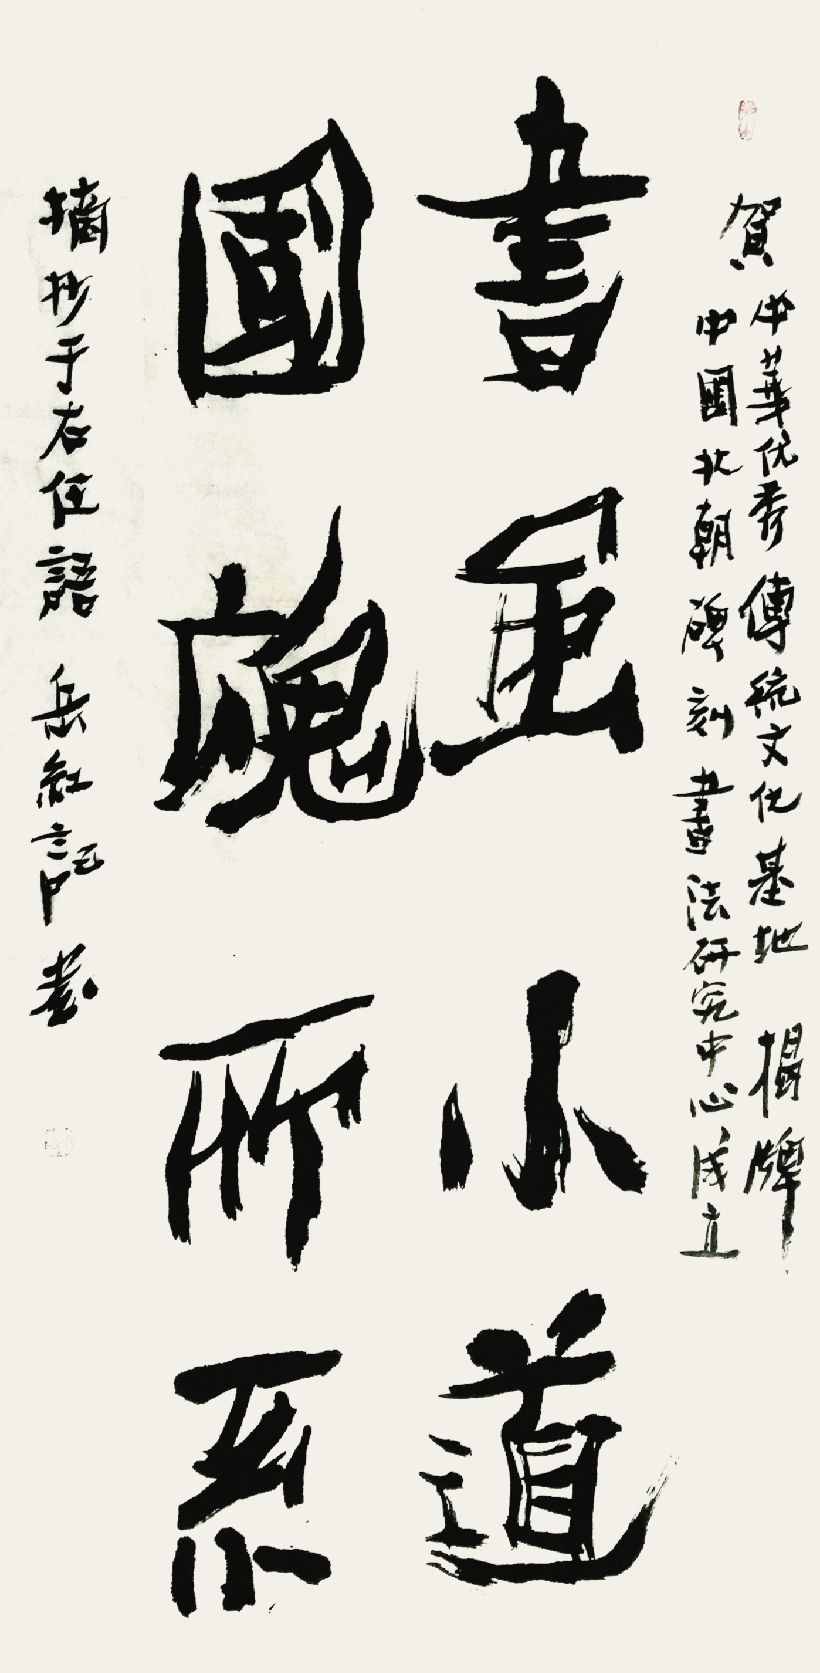 賀
中華优秀傳統文化基地揭牌
中國北朝碑刻書法研究中心成立
書虽小道
國魂所系
摘抄于右任語 岳敏記書